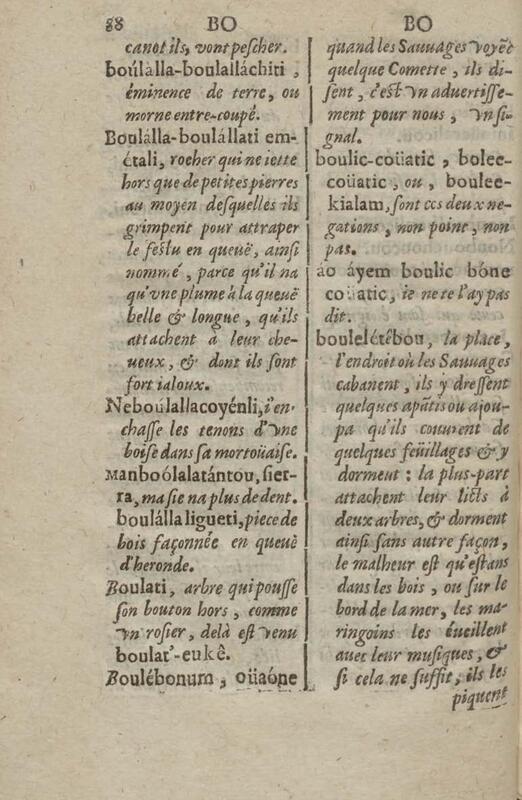 88 BO BO
canot ils, vont pescher.
boúlálla-boulalláchiti ,
éminence de terre, ou
morne entre-coupé.
Boulálla-boulállati em-
étali, rocher qui ne iette
hors que de petites pierres
au moyen desquelles ils
grimpent pour attraper
le festu en queuë, ainsi
nommé , parce qu'il na
qu'vne plume à la queuë
belle & longue , qu'ils
attachent à leur che-
ueux, & dont ils sont
fort ialoux.
Neboúlallacoyénli, i'en-
chasse les tenons d'vne
boise dans sa mortoüaise.
Manboólalatántou, sier-
ra, ma sie na plus de dent.
boulálla ligueti, piece de
bois façonnée en queuë
d'heronde.
Boulati, arbre qui pousse
son bouton hors , comme
vn rosier, delà est venu
boulat'-eukê.
Boulébonum , oüaóne
quand les Sauuages voyẽt
quelque Comette , ils di-
sent , c'est vn aduertisse-
ment pour nous , vn si-
gnal.
boulic-coüatic , bolee-
coüatic , ou , boulee-
kialam, sont ces deux ne-
gations , non point , non
pas.
áo áyem boulic bóne
coüatic, ie ne te l'ay pas
dit.
boulelétêbou, la place,
l'endroit où les Sauuages
cabanent , ils y dressent
quelques apãtis ou ajou-
pa qu'ils couurent de
quelques feüillages & y
dorment : la plus-part
attachent leur licts à
deux arbres, & dorment
ainsi sans autre façon,
le malheur est qu'estans
dans les bois , ou sur le
bord de la mer, les ma-
ringoins les éueillent
auec leur musiques , &
si cela ne suffit, ils les
piquent